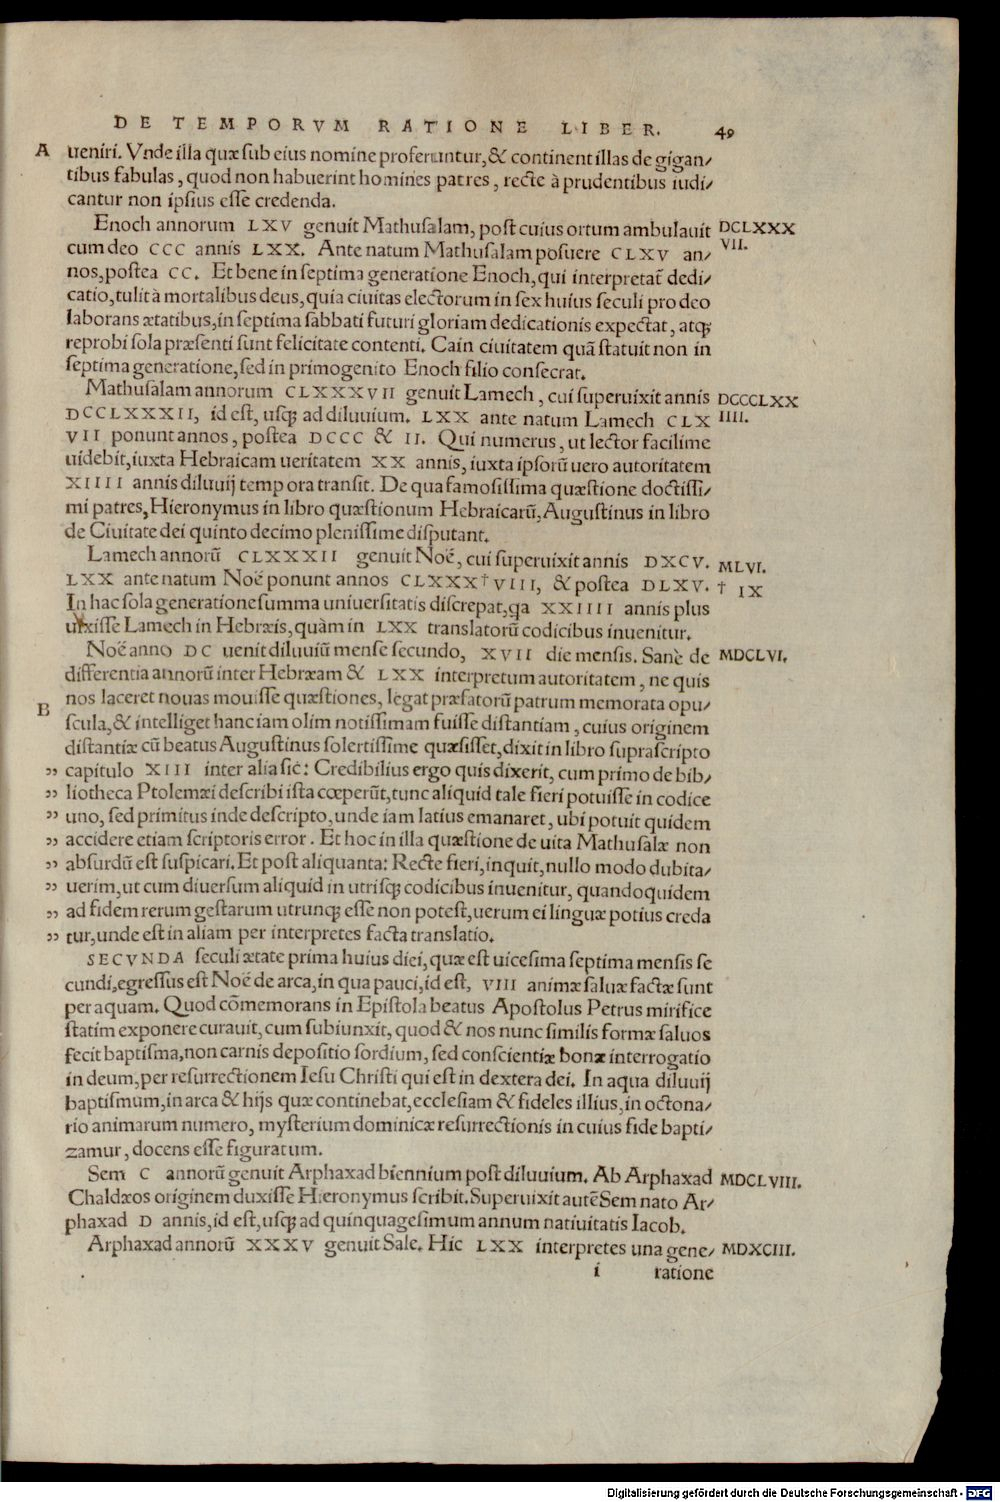 DE TEMPORVM RATIONE LIBER. 49
A ueniri. Vnde illa quæ sub eius nomine proferuntur, & continent illas de gigan/
tibus fabulas, quod non habuerint homines patres, recte à prudentibus iudi/
cantur non ipsius esse credenda.
Enoch annorum LXV genuit Mathusalam, post cuius ortum ambulauit DCLXXX
cum deo CCC annis LXX. Ante natum Mathusalam posuere CLXV an/ VII.
nos, postea CC. Et bene in septima generatione Enoch, qui interpretat᷑ dedi/
catio, tulit à mortalibus deus, quia ciuitas electorum in sex huius seculi pro deo
laborans ætatibus, in septima sabbati futuri gloriam dedicationis expectat, atq;
reprobi sola præsenti sunt felicitate contenti. Cain ciuitatem quā statuit non in
septima generatione, sed in primogenito Enoch filio consecrat.
Mathusalam annorum CLXXXVII genuit Lamech, cui superuixit annis DCCCLXX
DCCLXXXII, id est, usq; ad diluuium. LXX ante natum Lamech CLX IIII.
VII ponunt annos, postea DCCC & II. Qui numerus, ut lector facilime
uidebit, iuxta Hebraicam ueritatem XX annis, iuxta ipsorū uero autoritatem
XIIII annis diluuij temp ora transit. De qua famosissima quæstione doctissi/
mi patres, Hieronymus in libro quæstionum Hebraicarū, Augustinus in libro
de Ciuitate dei quinto decimo plenissime disputant.
Lamech annorū CLXXXII genuit Noë, cui superuixit annis DXCV. MLVI.
LXX ante natum Noë ponunt annos CLXXX†VIII, & postea DLXV. † IX
In hac sola generatione summa uniuersitatis discrepat, qa XXIIII annis plus
uixisse Lamech in Hebræis, quàm in LXX translatorū codicibus inuenitur.
Noë anno DC uenit diluuiū mense secundo, XVII die mensis. Sanè de MDCLVI.
differentia annorū inter Hebræam & LXX interpretum autoritatem, ne quis
nos laceret nouas mouisse quæstiones, legat præfatorū patrum memorata opu/
B scula, & intelliget hanc iam olim notissimam fuisse distantiam, cuius originem
distantiæ cū beatus Augustinus solertissime quæsisset, dixit in libro suprascripto
„ capitulo XIII inter alia sic: Credibilius ergo quis dixerit, cum primo de bib/
„ liotheca Ptolemæi describi ista cœperūt, tunc aliquid tale fieri potuisse in codice
„ uno, sed primitus inde descripto, unde iam latius emanaret, ubi potuit quidem
„ accidere etiam scriptoris error. Et hoc in illa quæstione de uita Mathusalæ non
„ absurdū est suspicari. Et post aliquanta: Recte fieri, inquit, nullo modo dubita/
„ uerim, ut cum diuersum aliquid in utrisq; codicibus inuenitur, quandoquidem
„ ad fidem rerum gestarum utrunq; esse non potest, uerum ei linguæ potius creda
„ tur, unde est in aliam per interpretes facta translatio.
SECVNDA seculi ætate prima huius diei, quæ est uicesima septima mensis se
cundi, egressus est Noë de arca, in qua pauci, id est, VIII animæ saluæ factæ sunt
per aquam. Quod cōmemorans in Epistola beatus Apostolus Petrus mirifice
statim exponere curauit, cum subiunxit, quod & nos nunc similis formæ saluos
fecit baptisma, non carnis depositio sordium, sed conscientiæ bonæ interrogatio
in deum, per resurrectionem Iesu Christi qui est in dextera dei. In aqua diluuij
baptismum, in arca & hijs quæ continebat, ecclesiam & fideles illius, in octona/
rio animarum numero, mysterium dominicæ resurrectionis in cuius fide bapti/
zamur, docens esse figuratum.
Sem C annorū genuit Arphaxad biennium post diluuium. Ab Arphaxad MDCLVIII.
Chaldæos originem duxisse Hieronymus scribit. Superuixit autē Sem nato Ar/
phaxad D annis, id est, usq; ad quinquagesimum annum natiuitatis Iacob.
Arphaxad annorū XXXV genuit Sale. Hic LXX interpretes una gene/ MDXCIII.
i ratione
Digitalisierung gefördert durch die Deutsche Forschungsgemeinschaft - DFG